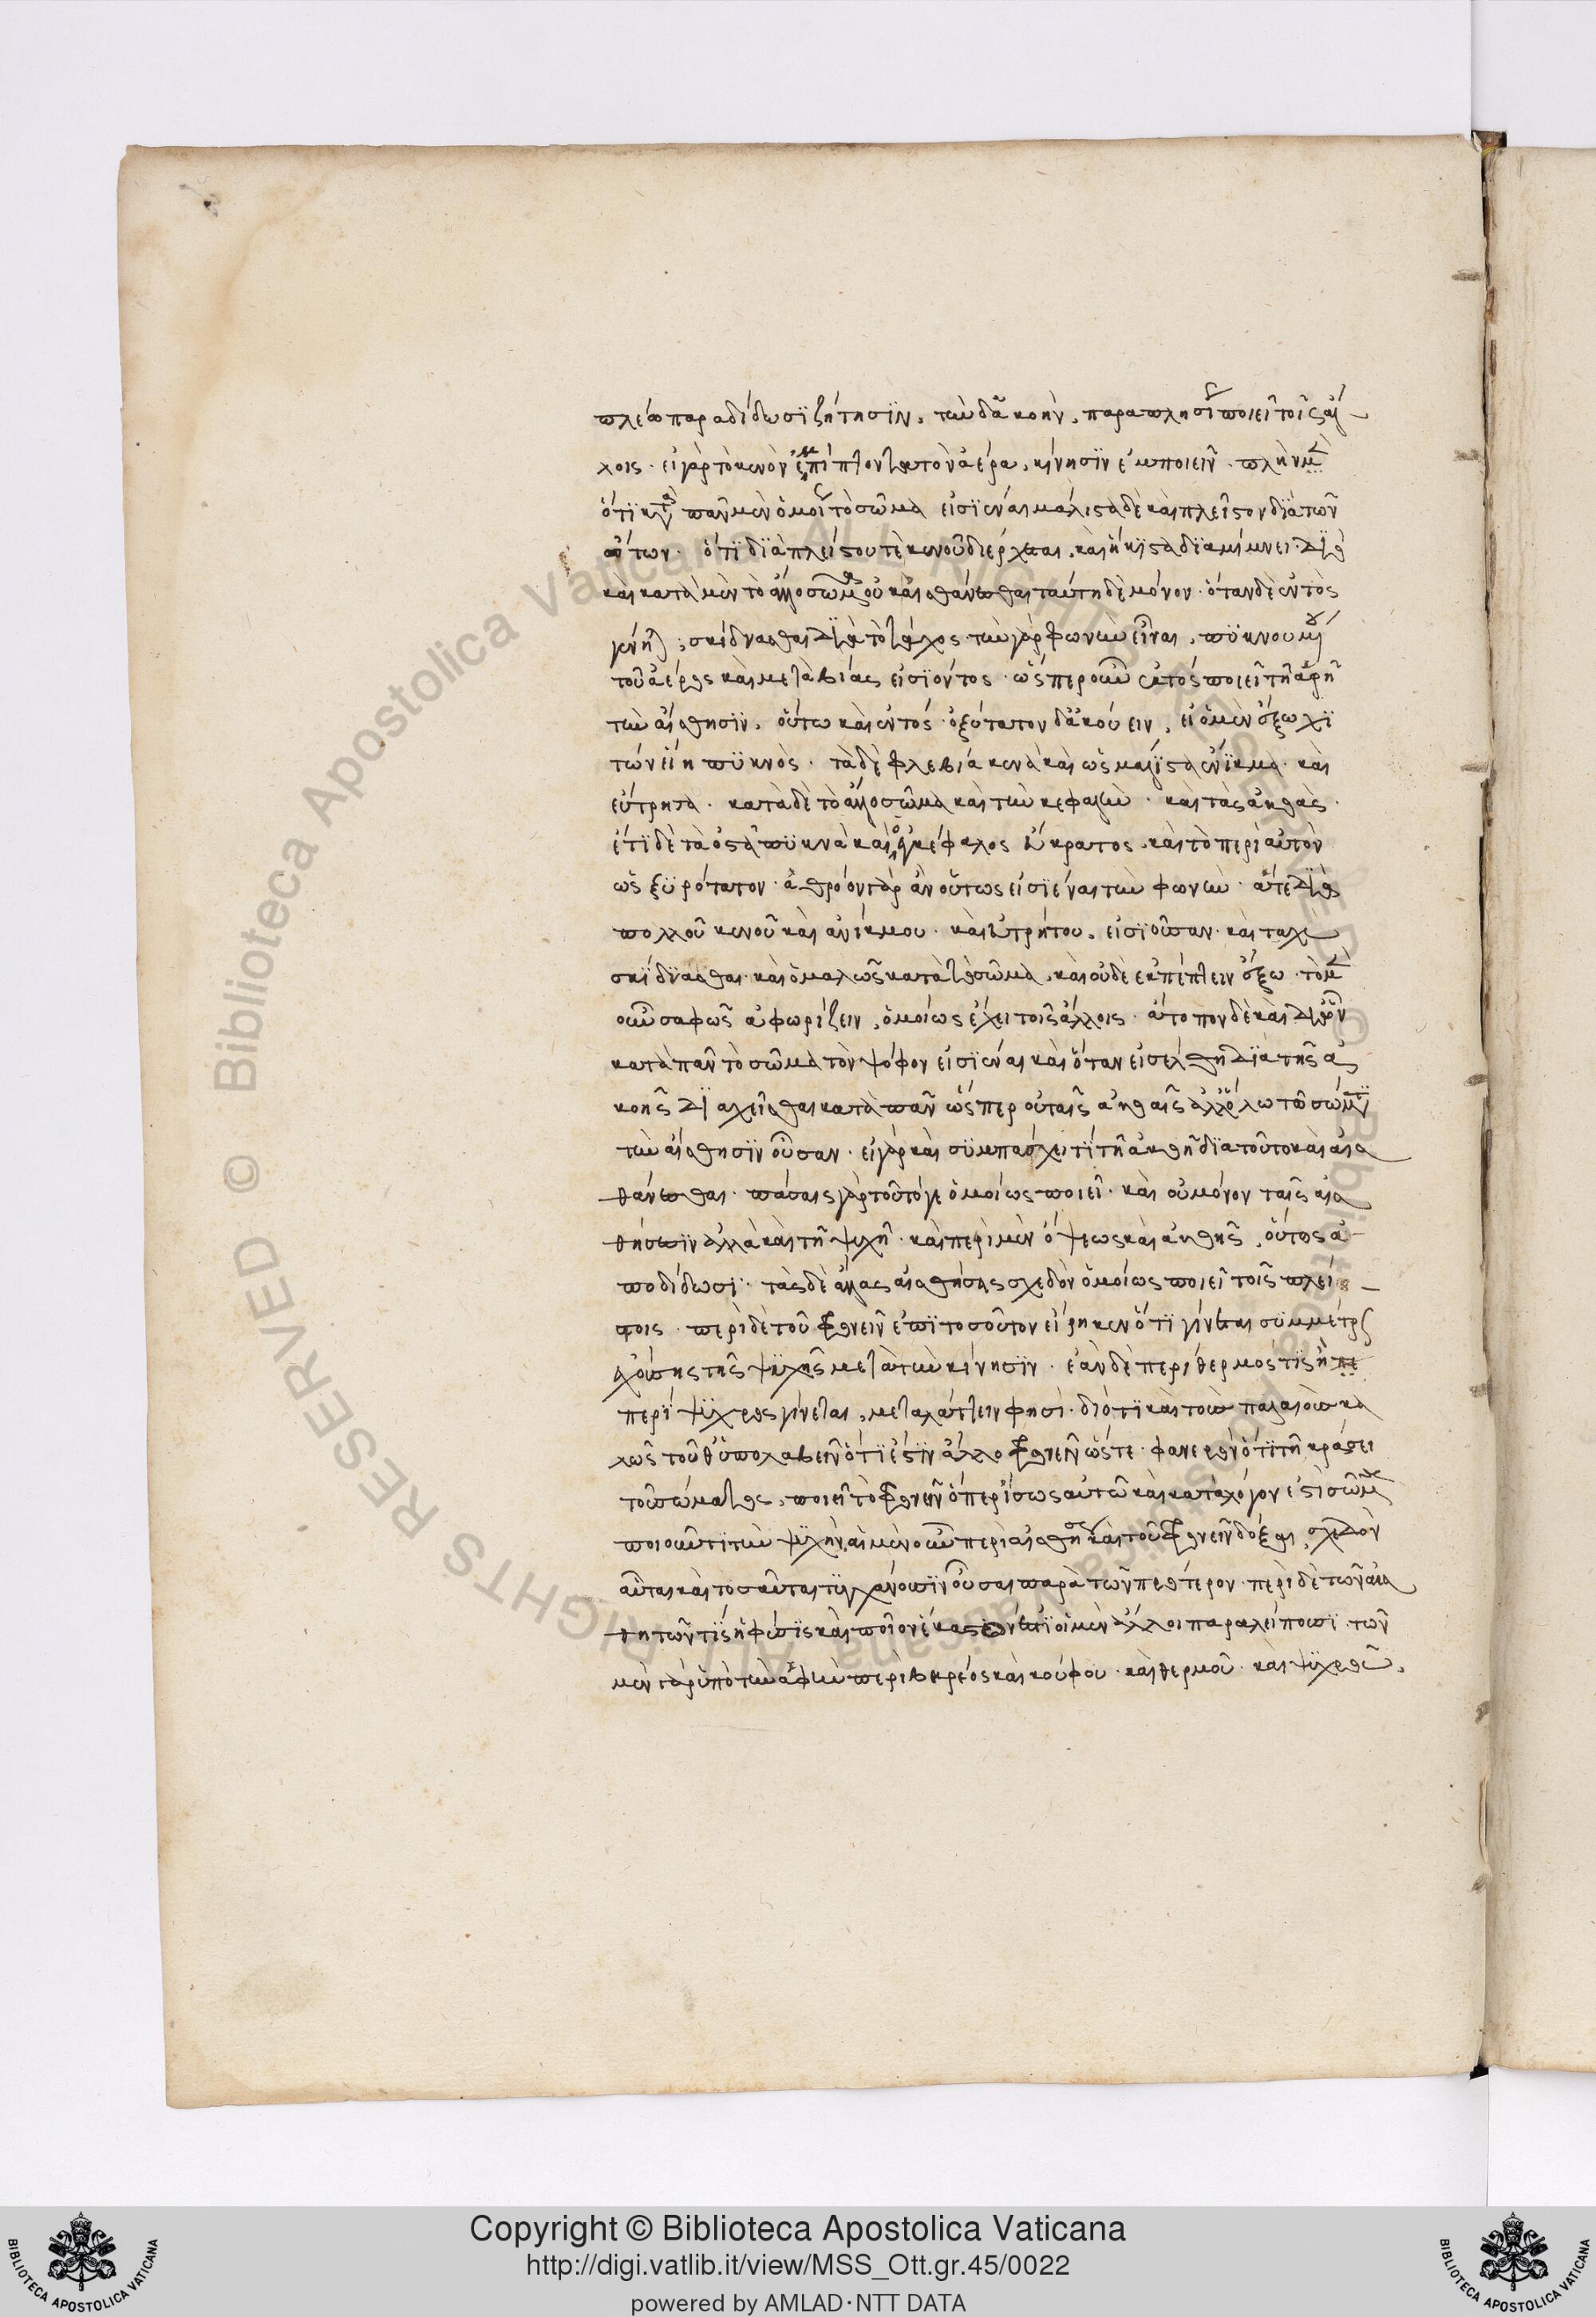 πλείω παραδίδωσι ζήτησιν. τὴν δ' ἀκοὴν παραπλησίως ποιεῖ τοῖς ἄλ
λοις. εἰ γὰρ τὸ κενὸν ἐμπίπτοντα τὸν ἀέρα, κίνησιν ἐμποιεῖν. πλὴν
ὅτι κατὰ πᾶν μὲν ὁμοίως τὸ σῶμα εἰσιέναι μάλιστα δὲ καὶ πλεῖστον διὰ τῶν
ὤτων. ὅτι διὰ πλείστου τὲ κενοῦ διέρχεται, καὶ ἥκιστα διαμίμνει. διὸ
καὶ κατὰ μὲν τὸ ἄλλο σῶμα οὐκ αἰσθάνεσθαι ταύτη δὲ μόνον. ὅταν δὲ ἐντὸς
γένηται, σκίδνασθαι διὰ τὸ τάχος. τὴν γὰρ φωνὴν εἶναι, πυκνουμένου
τοῦ ἀέρος καὶ μετὰ βίας εἰσιόντος. ὥσπερ οὖν ἐκτὸς ποιεῖ τῇ ἁφῇ
τὴν αἴσθησιν, οὕτω καὶ ἐντός. ὀξύτατον δ' ἀκούειν, εἰ ὁ μὲν ἔξω χι
τὼν εἴη πυκνὸς. τὰ δὲ φλεβία κενὰ καὶ ὡς μάλιστα ἄνικμα. καὶ
εὔτρητα. κατὰ δὲ τὸ ἄλλο σῶμα καὶ τὴν κεφαλὴν. καὶ τὰς ἀκοὰς.
ἔτι δὲ τὰ ὀστᾶ πυκνὰ καὶ ὁ ἐγκέφαλος εὔκρατος. καὶ τὸ περὶ αὐτὸν
ὡς ξυρότατον. ἀθρόον γὰρ ἂν οὕτως εἰσιέναι τὴν φωνὴν. ἅτε διὰ
πολλοῦ κενοῦ καὶ ἀνίκμου. καὶ εὐτρήτου, εἰσιοῦσαν. καὶ ταχὺ
σκίδνασθαι. καὶ ὁμαλῶς κατὰ τὸ σῶμα, καὶ οὐδὲ ἐκπίπτειν ἔξω. τὸ μὲν
οὖν σαφῶς ἀφορίζειν, ὁμοίως ἔχει τοῖς ἄλλοις. ἄτοπον δὲ καὶ ἴδιον
κατὰ πᾶν τὸ σῶμα τὸν ψόφον εἰσιέναι καὶ ὅταν εἰσέλθῃ διὰ τῆς ἀ
κοῆς διαχεῖσθαι κατὰ πᾶν ὥσπερ οὐ ταῖς ἀκοαῖς ἀλλ' ὅλῳ τῷ σώματι
τὴν αἴσθησιν οὖσαν. εἰ γὰρ καὶ συμπάσχει τί τῇ ἀκοῇ διὰ τοῦτο καὶ αἰσ
θάνεσθαι. πάσαις γὰρ τοῦτό γε ὁμοίως ποιεῖ. καὶ οὐ μόνον ταῖς αἰσ
θήσεσιν ἀλλὰ καὶ τῇ ψυχῇ. καὶ περὶ μὲν ὄψεως καὶ ἀκοῆς, οὕτως ἀ
ποδίδωσι. τὰς δὲ ἄλλας αἰσθήσεις σχεδὸν ὁμοίως ποιεῖ τοῖς πλεί
στοις. περὶ δὲ τοῦ φρονεῖν ἐπὶ τοσοῦτον εἴρηκεν ὅτι γίνεται συμμέτρως
ἐχούσης τῆς ψυχῆς μετὰ τὴν κίνησιν. ἐὰν δὲ περίθερμός τις ἢ πε
περίψυχρος γίνεται, μεταλάττειν φησί. διότι καὶ τοὺς παλαιοὺς κα
λῶς τοῦθ' ὑπολαβεῖν ὅτι ἐστὶν ἀλλοφρονεῖν ὥστε φανερὸν ὅτι τῇ κράσει
τοῦ σώματος, ποιεῖ τὸ φρονεῖν ὅπερ ἴσως αὐτῷ καὶ κατὰ λόγον ἐστὶ σῶμα
ποιοῦντι τὴν ψυχήν. αἱ μὲν οὖν περὶ αἰσθήσεως καὶ τοῦ φρονεῖν δόξαι, σχεδὸν
αὗται καὶ τοσαῦται τυγχάνουσιν οὖσαι παρὰ τῶν πρότερον. περὶ δὲ τῶν αἰσ
θητῶν τίς ἡ φύσις καὶ ποῖον ἕκαστόν ἐστιν οἱ μὲν ἄλλοι παραλείπουσι. τῶν
μὲν γὰρ ὑπὸ τὴν ἁφὴν περὶ βαρέος καὶ κούφου. καὶ θερμοῦ. καὶ ψυχροῦ,
Copyright © Biblioteca Apostolica Vaticana
http://digi.vatlib.it/view/MSS_Ott.gr.45/0022
powered by AMLAD·NTT DATA